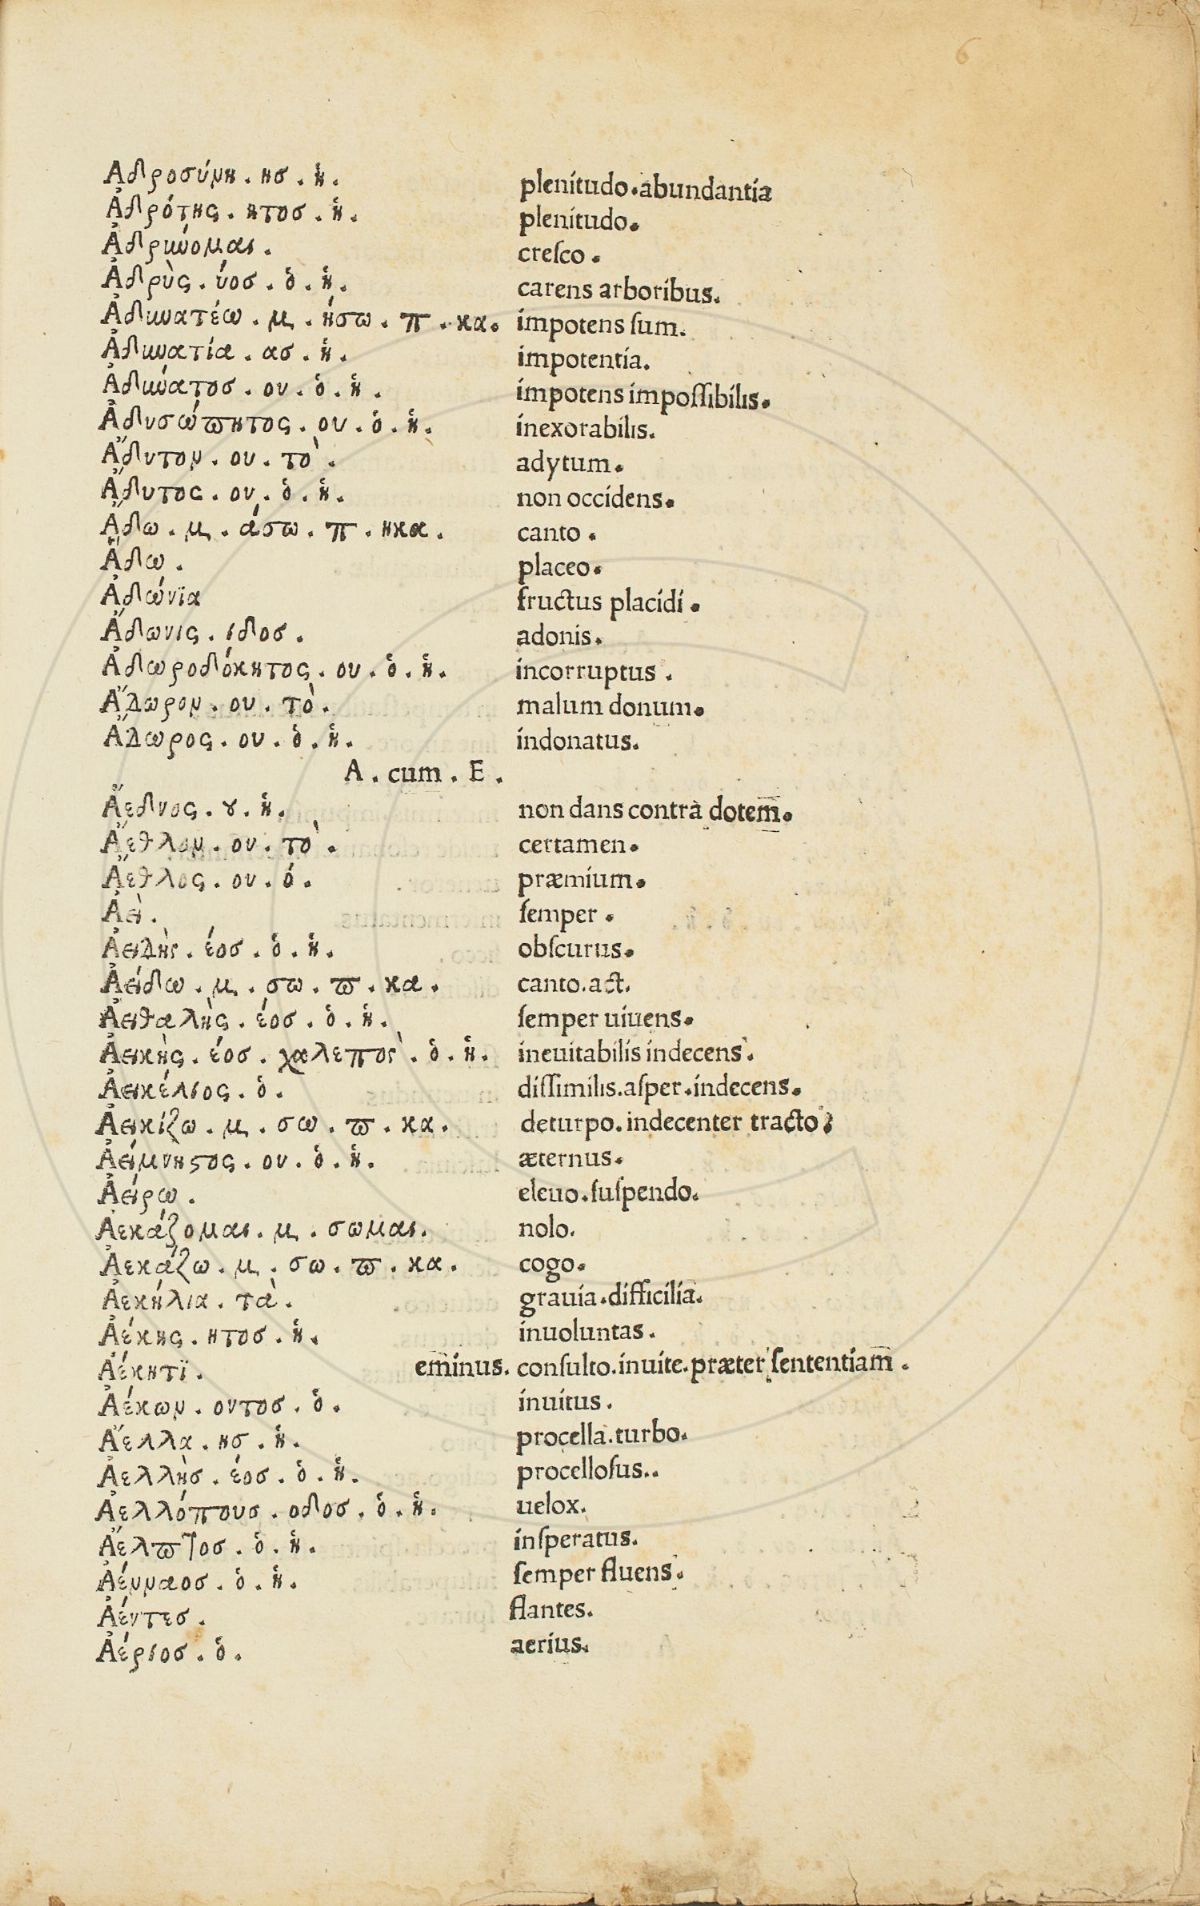 6
Αδροσύνη . ησ . ἡ . plenitudo.abundantia
Ἀδρότης . ητοσ . ἡ . plenitudo.
Ἀδρύομαι . creſco .
Ἀδρὺς . ύοσ . ὁ . ἡ . carens arboribus.
Ἀδυνατέω . μ . ήσω . π . κα . impotens ſum.
Ἀδυνατία . ασ . ἡ . impotentia.
Ἀδύνατοσ . ου . ὁ . ἡ . impotens impoſſibilis.
Ἀδυσώπητος . ου . ὁ . ἡ . inexorabilis.
Ἄδυτον . ου . τὸ . adytum.
Ἄδυτος . ου . ὁ . ἡ . non occidens.
Ἄδω . μ . άσω . π . ηκα . canto .
Ἅδω . placeo.
Ἀδώνϊα fructus placidi .
Ἄδωνις . ιδοσ . adonis.
Ἀδωροδόκητος . ου . ὁ . ἡ . incorruptus .
Ἄδωρον . ου . τὸ . malum donum.
Ἄδωρος . ου . ὁ . ἡ . indonatus.
A . cum . E .
Ἄεδνος . ȣ . ἡ . non dans contrà dotem̄.
Ἄεθλον . ου . τὸ . certamen.
Ἄεθλος . ου . ό . præmium.
Ἀεὶ . ſemper .
Ἀειδὴς . έοσ . ὁ . ἡ . obſcurus.
Ἀείδω . μ . σω . π . κα . canto.act.
Ἀειθαλὴς . έοσ . ὁ . ἡ . ſemper uiuens.
Ἀεικὴς . έοσ . χαλεπὸς . ὁ . ἡ . ineuitabilis indecens .
Ἀεικέλιος . ὁ . diſſimilis.aſper.indecens.
Ἀεικίζω . μ . σω . π . κα . deturpo.indecenter tracto.
Ἀείμνηϛος . ου . ὁ . ἡ . æternus.
Ἀείρω . eleuo.ſuſpendo.
Ἀεκάζομαι . μ . σωμαι . nolo.
Ἀεκάζω . μ . σω . π . κα . cogo.
Ἀεκήλια . τὰ . grauia.difficilia.
Ἀέκης . ητοσ . ἡ . inuoluntas .
Ἀέκητϊ . em̄inus. conſulto.inuite.præter ſententiam̄ .
Ἀέκων . οντοσ . ὁ . inuitus .
Ἄελλα . ησ . ἡ . procella.turbo.
Ἀελλὴσ . έοσ . ὁ . ἡ . proceloſus..
Ἀελλόπουσ . οδοσ . ὁ . ἡ . uelox.
Ἄελπτοσ . ὁ . ἡ . inſperatus.
Ἀένναοσ . ὁ . ἡ . ſemper fluens .
Ἀέντεσ . flantes.
Ἀέριοσ . ὁ . aerius.